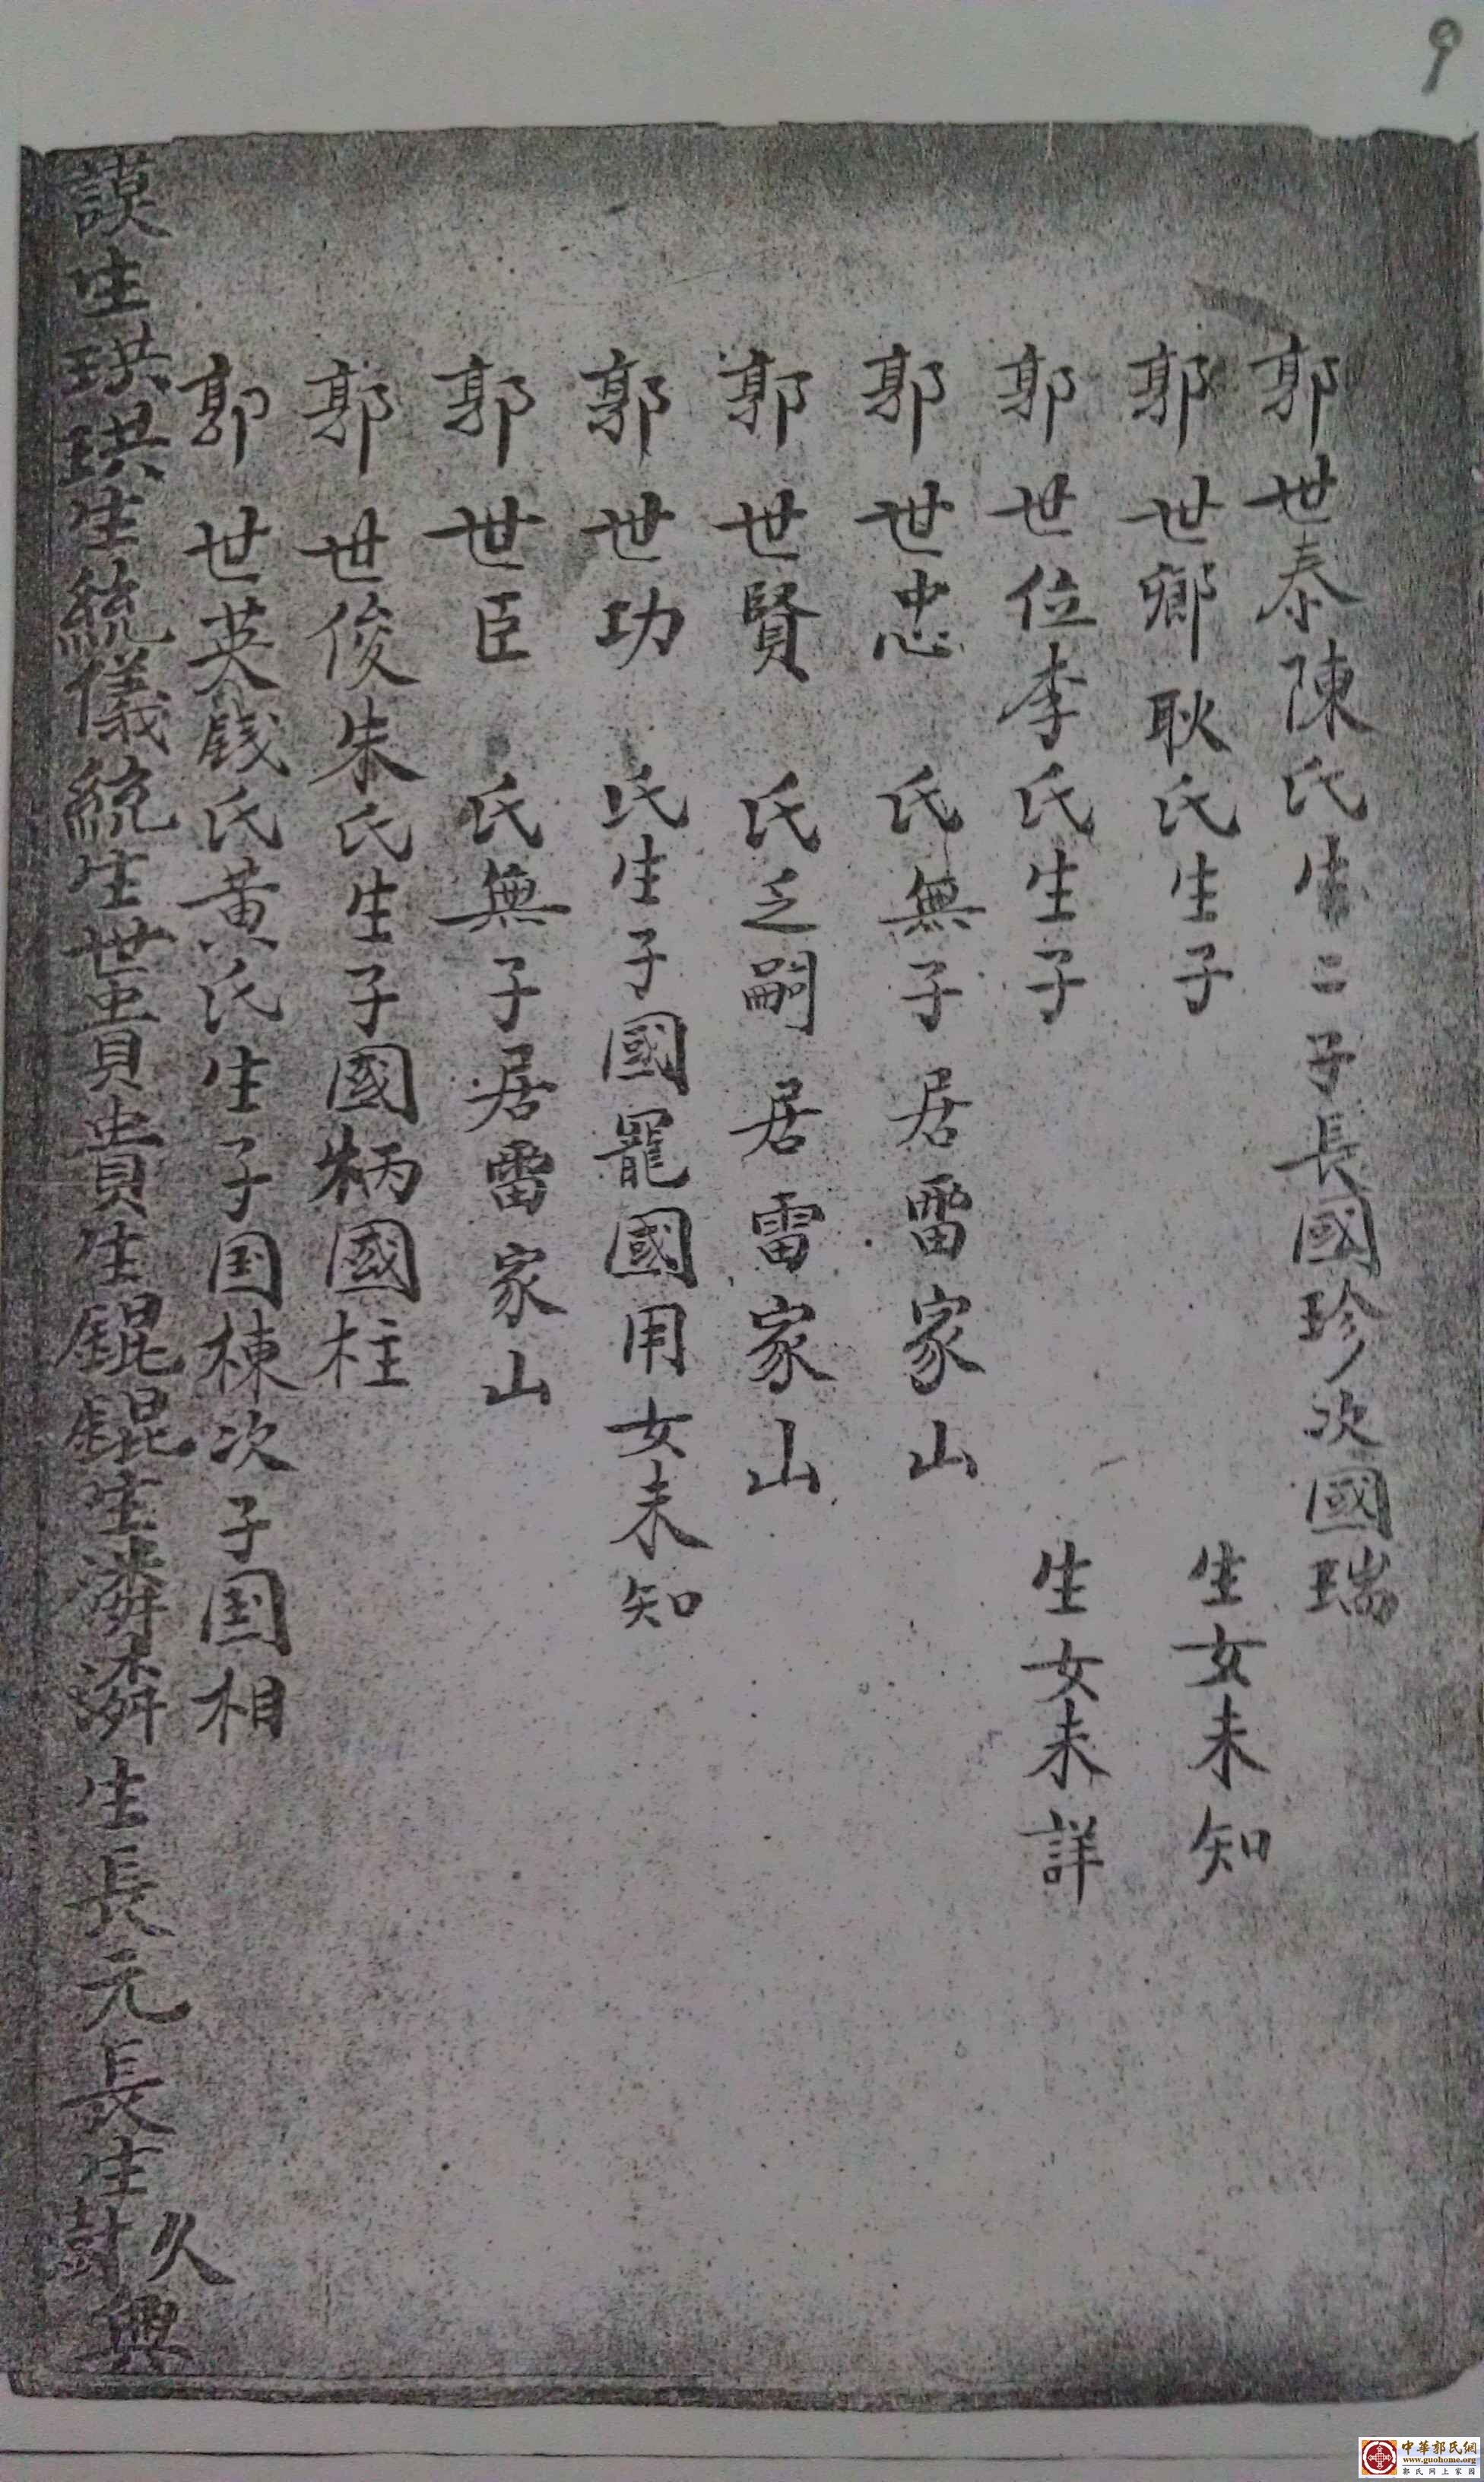 9
郭世泰陳氏生二子長國珍次國瑞
郭世鄉耿氏生子 生女未知
郭世位李氏生子 生女未詳
郭世忠 氏無子居雷家山
郭世賢 氏乏嗣居雷家山
郭世功 氏生子國寵國用女未知
郭世臣 氏無子居雷家山
郭世俊朱氏生子國柄國柱
郭世英錢氏黃氏生子国棟次子国相
謨生珙珙生統儀統生世貴貴生錕錕生潾潾生長元長生久興
中華郭氏網
www.guohome.org
郭氏网上家园